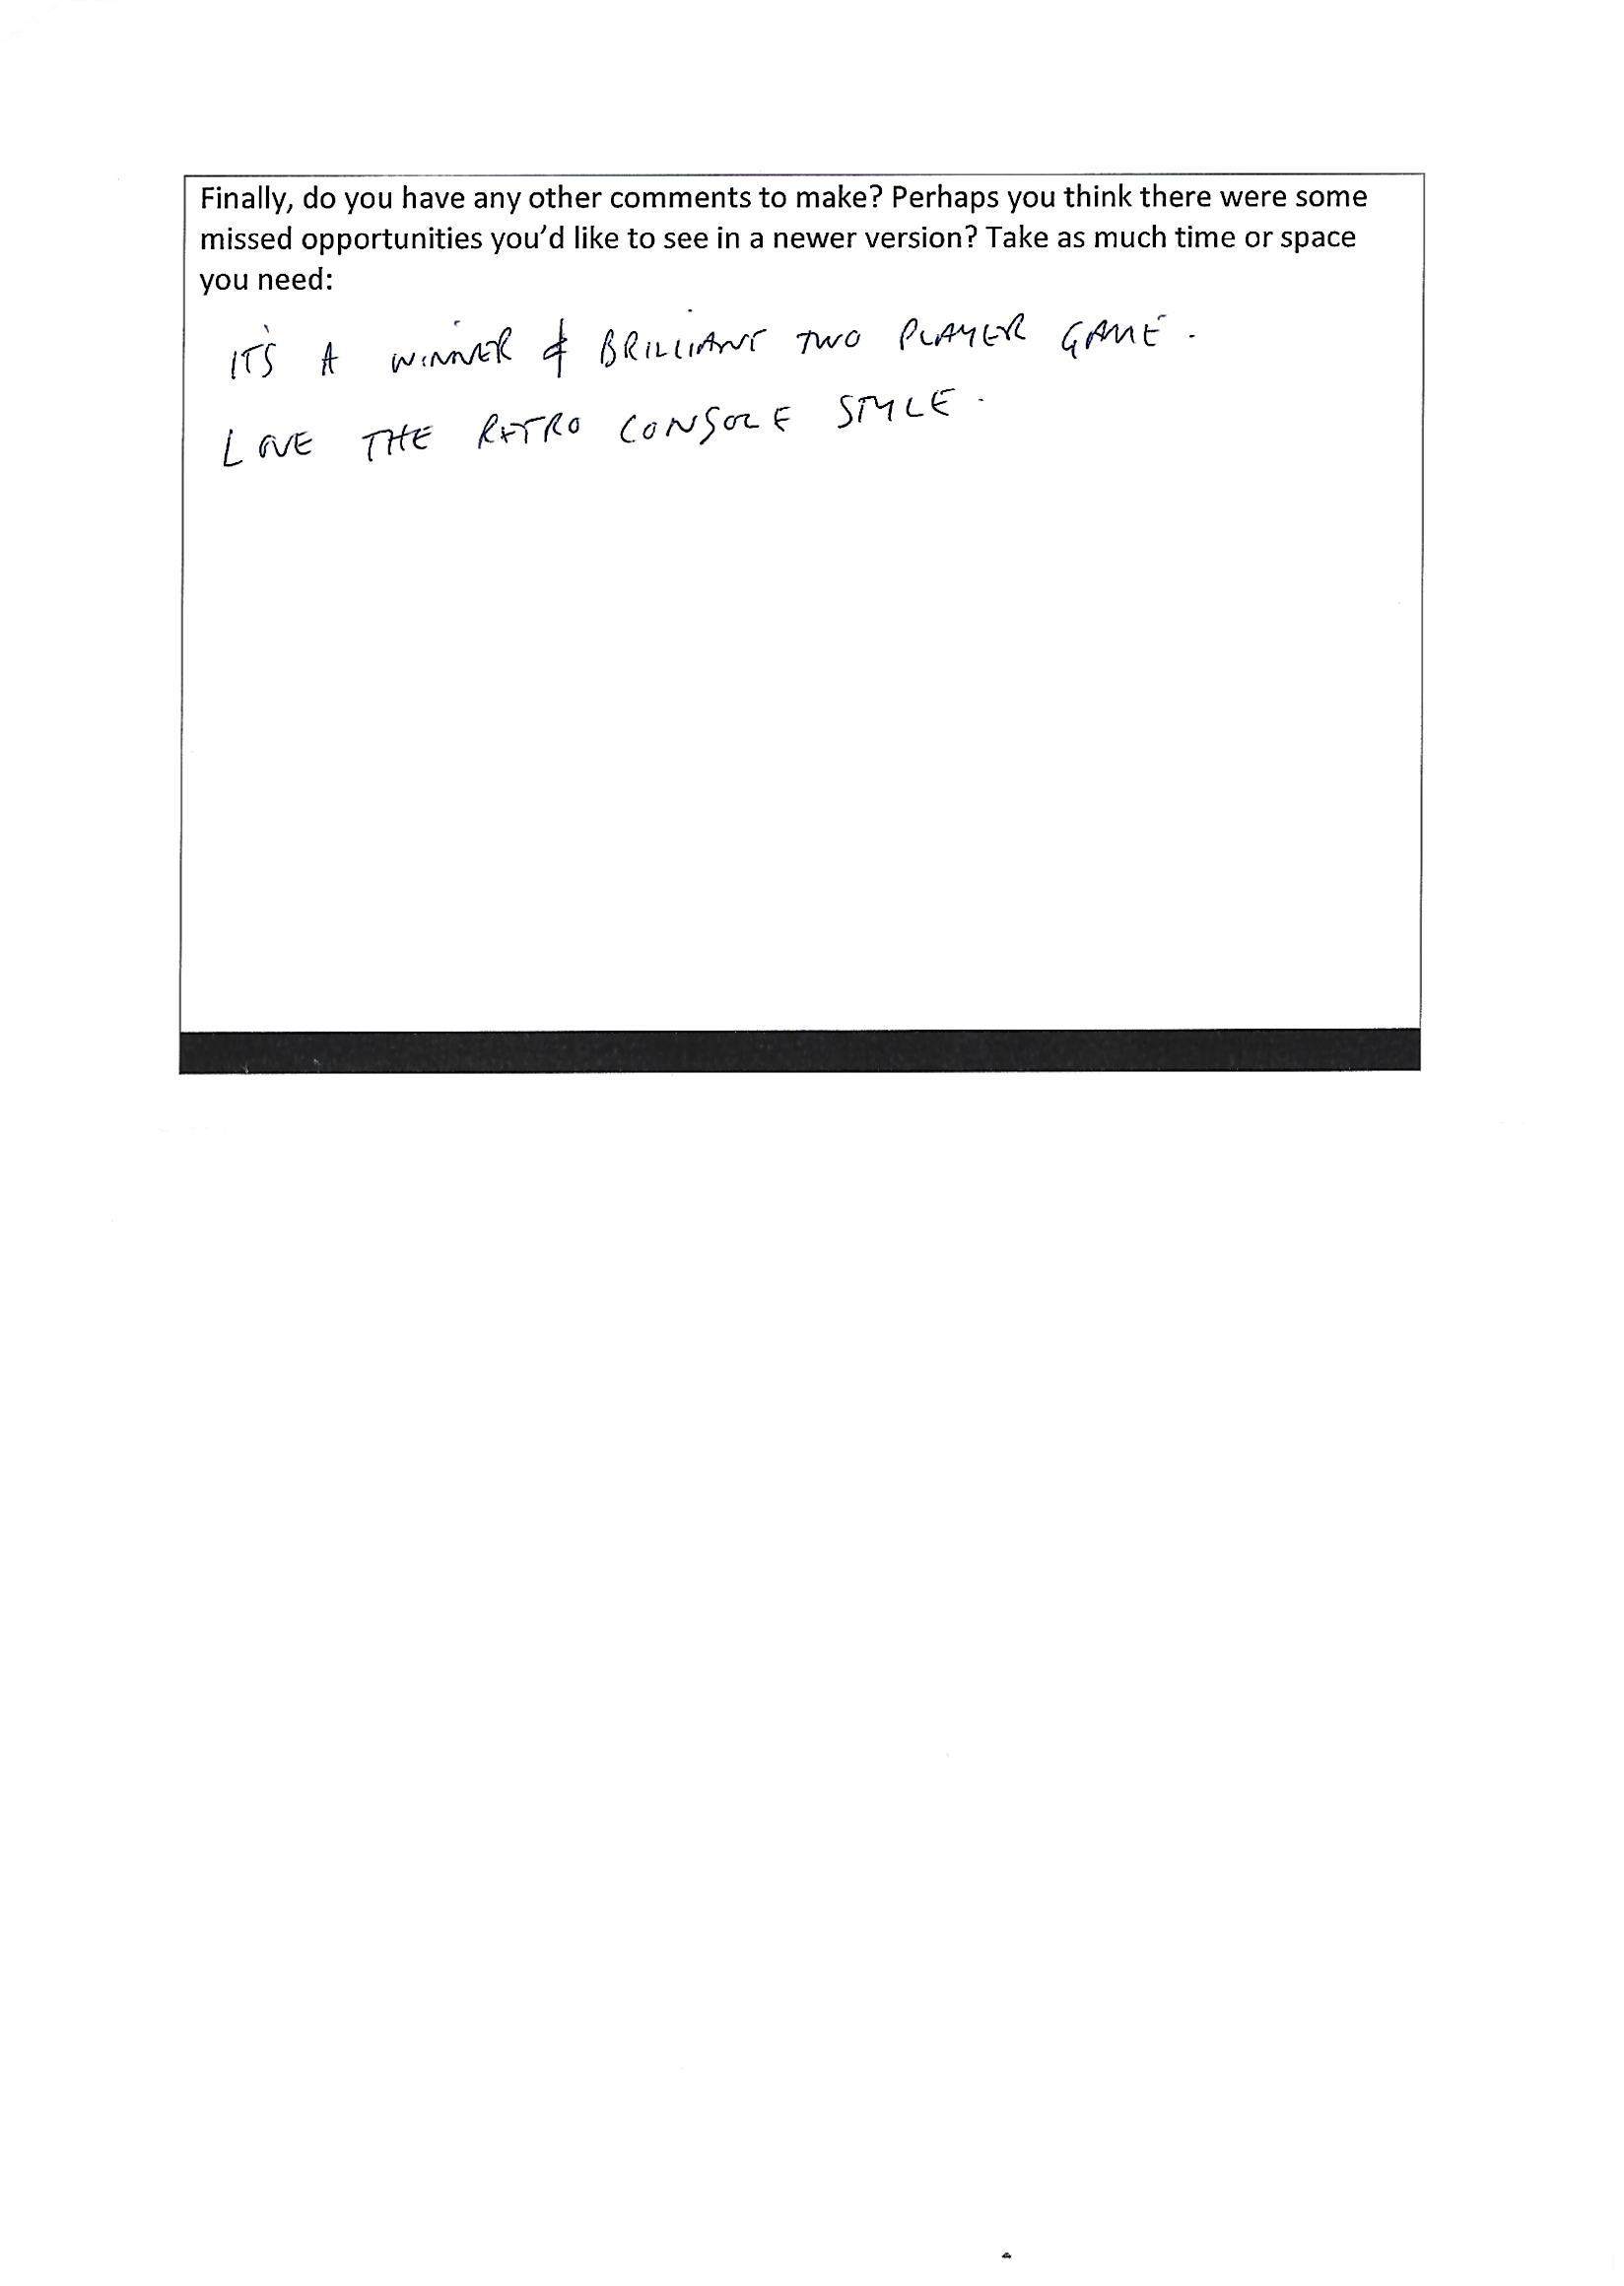 Finally, do you have any other comments to make? Perhaps you think there were some
missed opportunities you'd like to see in a newer version? Take as much time or space
you need:
IT'S A WINNER & BRILLIANT TWO PLAYER GAME.
LOVE THE RETRO CONSOLE STYLE.